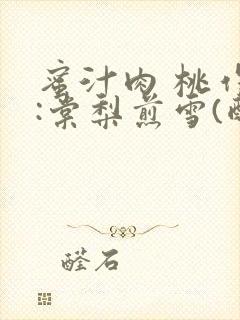 蜜汁肉桃作
:棠梨煎雪(醛
醛石